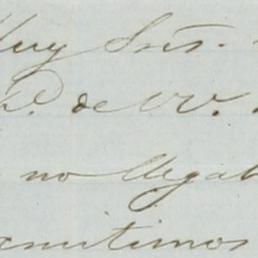 Muy Sres.
de VV.
no llegab
emitimos